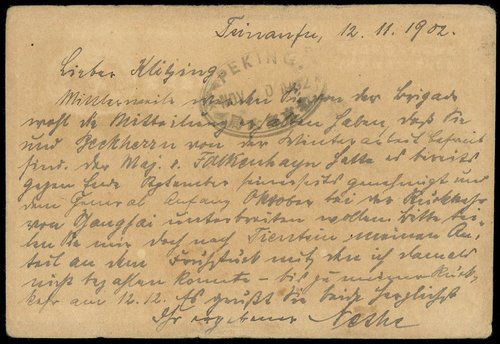 Tsinanfu, 12. 11. 1902.
Lieber Klitzing,
PEKING
NOV 02
Mittlerweile werden Sie von der Brigade
wohl die Mitteilung erhalten haben, daß Sie
und Beckherrn von der Winterarbeit befreit
sind. Der Maj. v. Falkenhayn hatte es bereits
gegen Ende September seinerseits genehmigt und
dem General Anfang Oktober bei der Rückkehr
von Shanghai unterbreiten wollen. Bitte tei-
len Sie mir doch nach Tientsin meinen An-
teil an dem Frühstück mit, den ich damals
nicht bezahlen konnte – bis zu meiner Rück-
kehr am 12.12. Es grüßt Sie beide herzlichst
Ihr ergebener Nethe